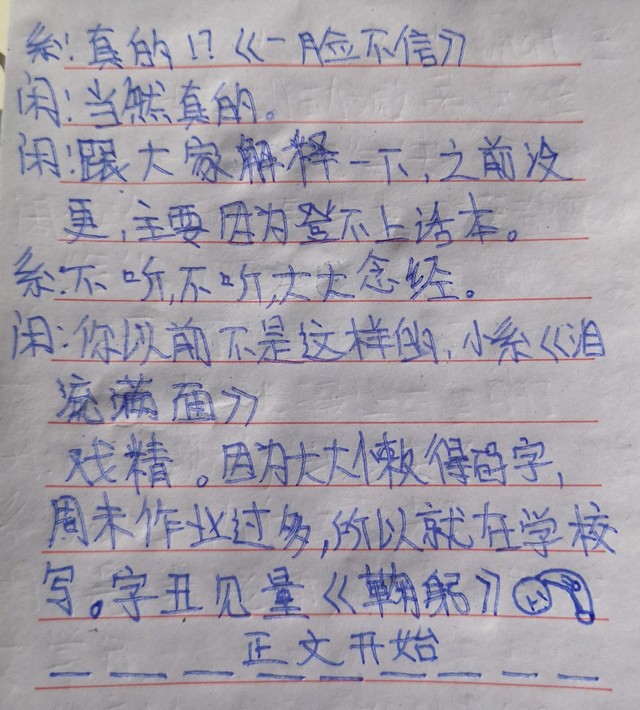 系:真的!?《一脸不信》
闲:当然真的。
闲:跟大家解释一下,之前没
更,主要因为登不上话本。
系:不听,不听,大大念经。
闲:你以前不是这样的,小系《泪
流满面》
戏精。因为大大懒得码字,
周末作业过多,所以就在学校
写。字丑见量《鞠躬》
正文开始